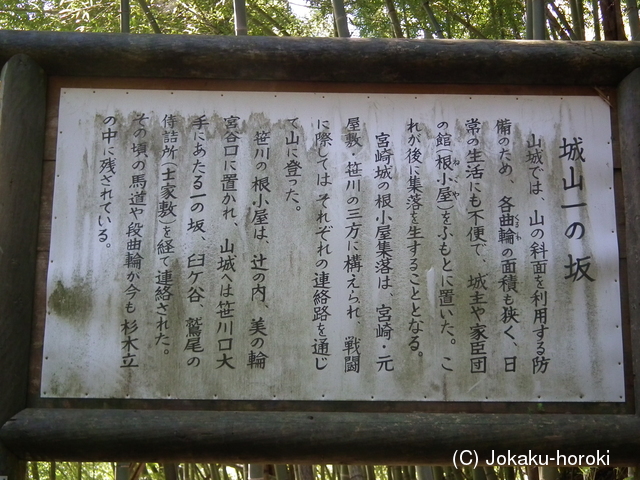 城山一の坂
山城では、山の斜面を利用する防
備のため、各曲輪の面積も狭く、日
くるわ
常の生活にも不便で、城主や家臣団
の館(根小屋)をふもとに置いた。こ
ねごや
れが後に集落を生することとなる。
宮崎城の根小屋集落は、宮崎・元
屋敷・笹川の三方に構えられ、戦闘
に際しては それぞれの連絡路を通じ
て山に登った。
笹川の根小屋は、辻の内、美の輪
宮谷口に置かれ、山城へは笹川口大
手にあたる一の坂、臼ケ谷、鷲尾の
侍詰所(士家敷)を経て連絡された。
その頃の馬道や段曲輪が今も 杉木立
の中に残されている。
(C) Jokaku-horoki